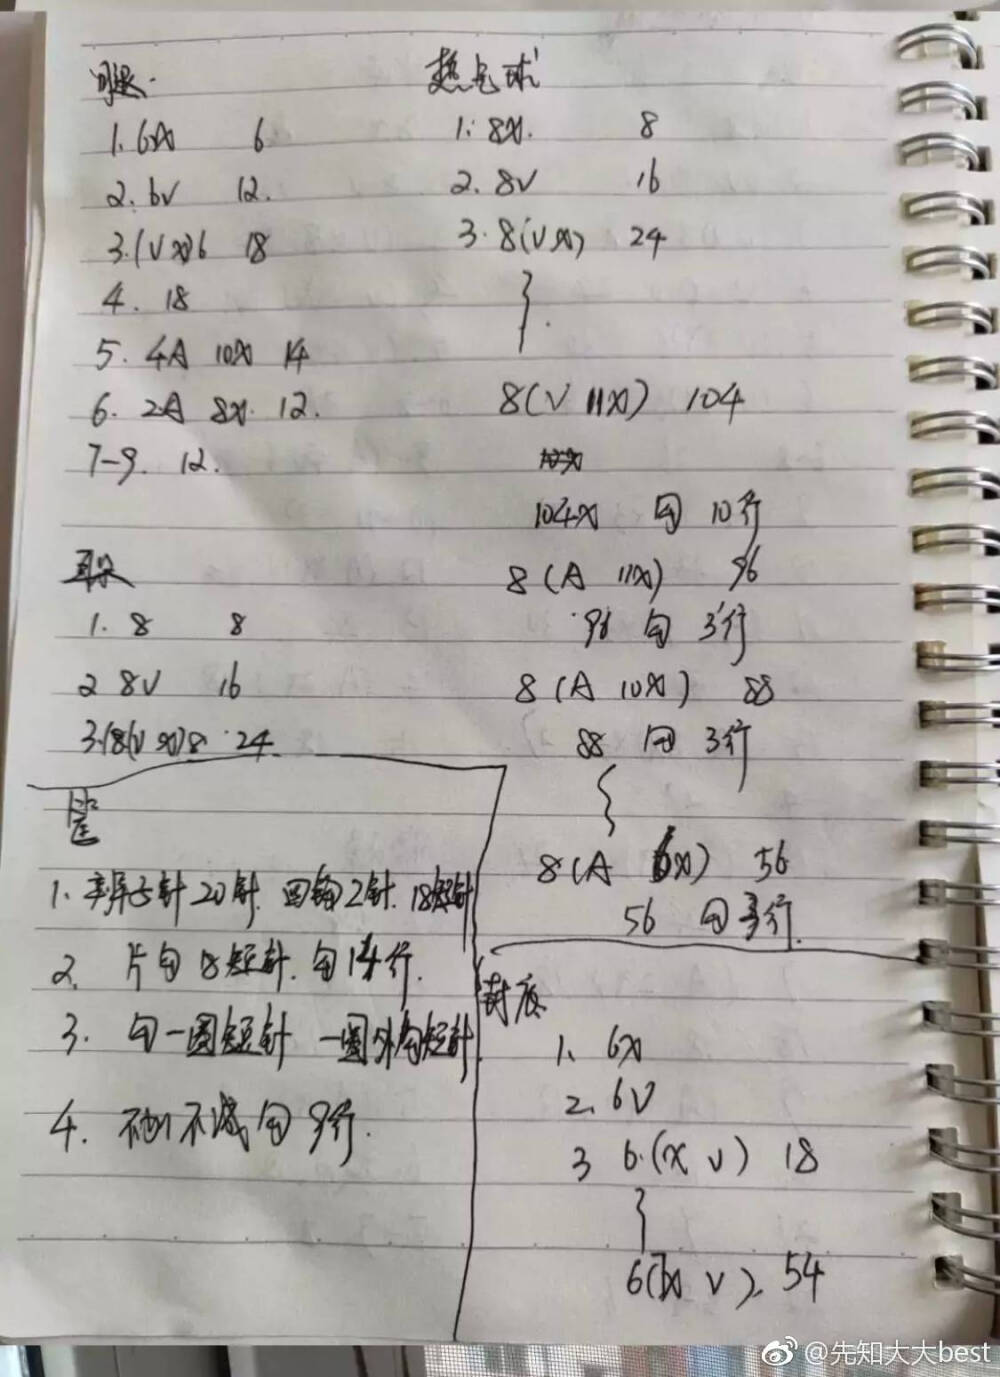 腿.
1. 6X 6
2. 6V 12.
3. (V X)6 18
4. 18
5. 4A 10X 14
6. 2A 8X. 12.
7-9. 12.
1. 8 8
2 8V 16
3.(8(V X)8 24
筐
1. 辫子针20针. 回钩2针. 18短针
2. 片勾18短针. 勾14行.
3. 勾一圈短针 一圈外勾短针.
4. 不加不减勾9行.
热气球
1. 8X. 8
2. 8V 16
3. 8(V X) 24
8(V 11X) 104
104X 勾 10行
8(A 11X) 96
96 勾 3行
8(A 10X) 88
88 勾 3行
8(A 6X) 56
56 勾3行.
封底
1. 6X
2. 6V
3 6.(X V) 18
6(7X V). 54
@先知大大best